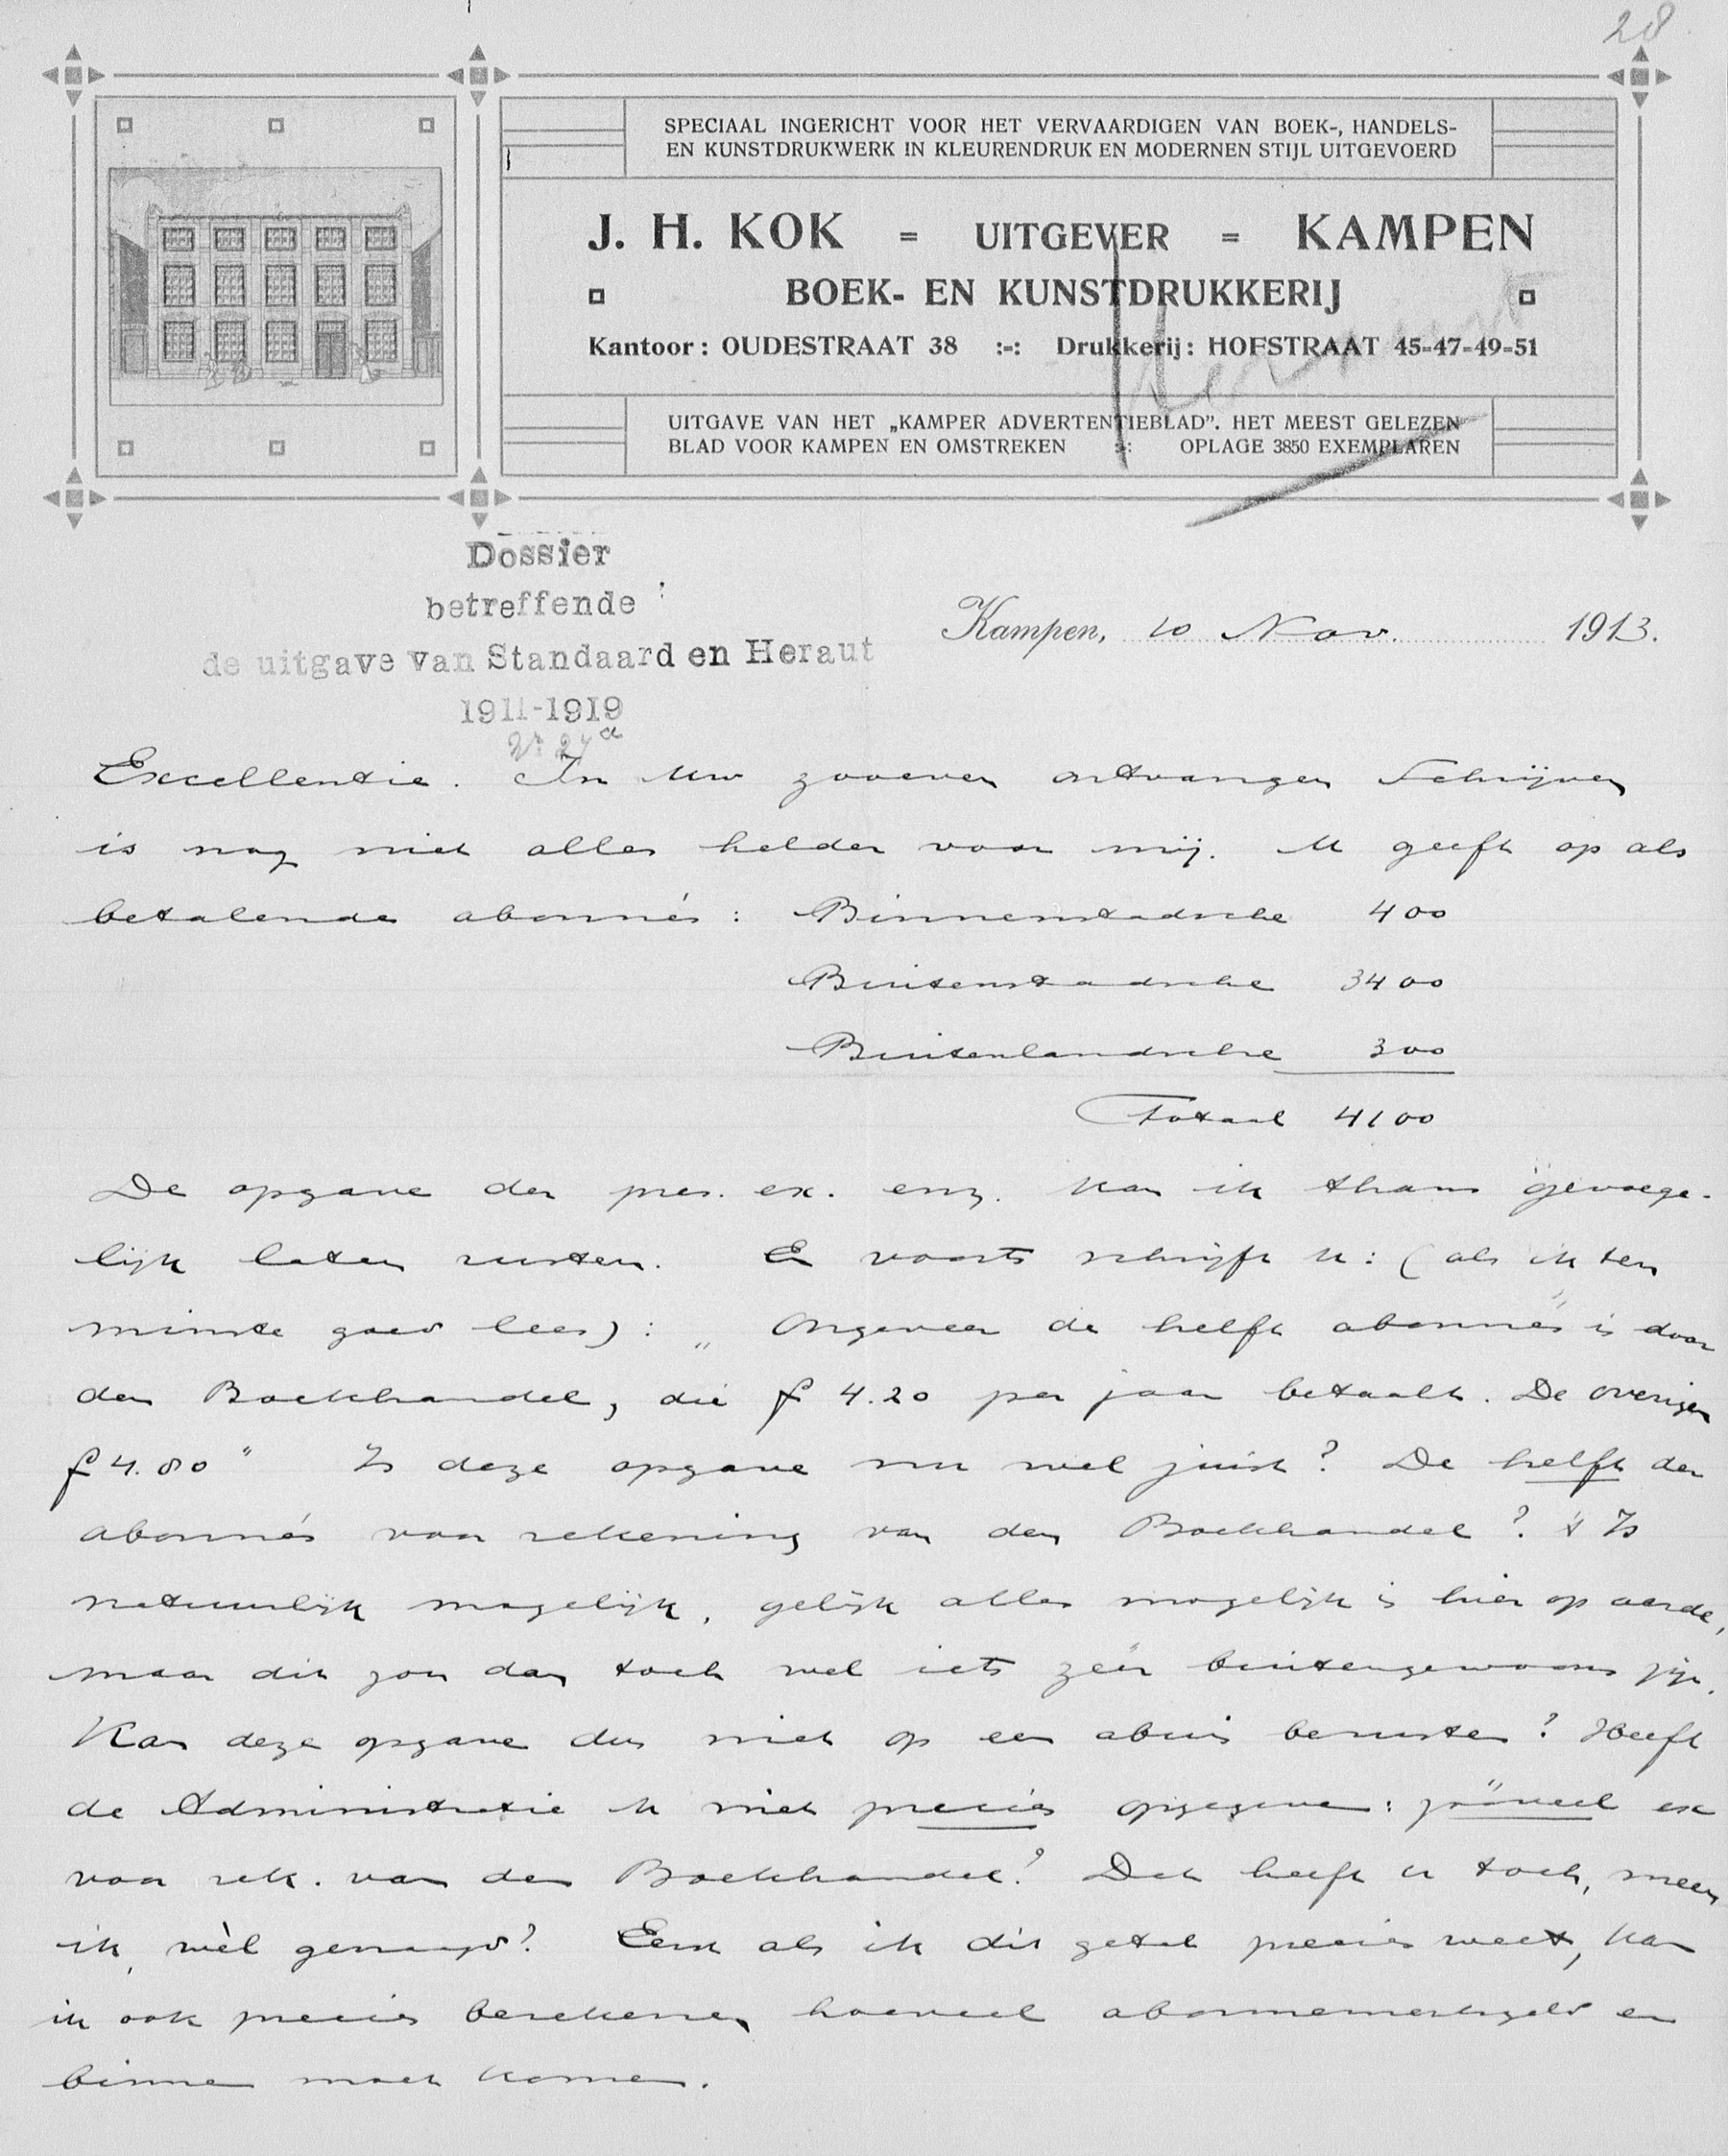 28
SPECIAAL INGERICHT VOOR HET VERVAARDIGEN VAN BOEK-, HANDELS-
EN KUNSTDRUKWERK IN KLEURENDRUK EN MODERNEN STIJL UITGEVOERD
J. H. KOK = UITGEVER = KAMPEN
BOEK- EN KUNSTDRUKKERIJ
Kantoor: OUDESTRAAT 38 :-: Drukkerij: HOFSTRAAT 45-47-49-51
UITGAVE VAN HET „KAMPER ADVERTENTIEBLAD”. HET MEEST GELEZEN
BLAD VOOR KAMPEN EN OMSTREKEN :: OPLAGE 3850 EXEMPLAREN
Dossier
betreffende :
de uitgave van Standaard en Heraut
1911-1919
Kampen, 10 Nov. 1913.
Excellentie. In Uw zooeven ontvangen schrijven
is nog niet alles helder voor mij. U geeft op als
betalende abonnés: Binnenstadsche 400
Buitenstadsche 3400
Buitenlandsche 300
Totaal 4100
De opgave der pres. ex. enz. kan ik thans gevoege-
lijk laten rusten. En voorts schrijft U: (als ik ten
minste goed lees): „Ongeveer de helft abonnés is door
den Boekhandel, die f 4.20 per jaar betaalt. De overigen
f 4.80" Is deze opgave nu wel juist? De helft der
abonnés voor rekening van den Boekhandel? 't Is
natuurlijk mogelijk, gelijk alles mogelijk is hier op aarde,
maar dit zou dan toch wel iets zéér buitengewoons zijn.
Kan deze opgave dus niet op een abuis berusten? Heeft
de Administratie U niet precies opgegeven: zóóveel ex
voor rek. van den Boekhandel? Dat heeft U toch, meen
ik, wèl gevraagd? Eerst als ik dit getal precies weet, kan
ik ook precies berekenen hoeveel abonnementsgeld er
binnen moet komen.